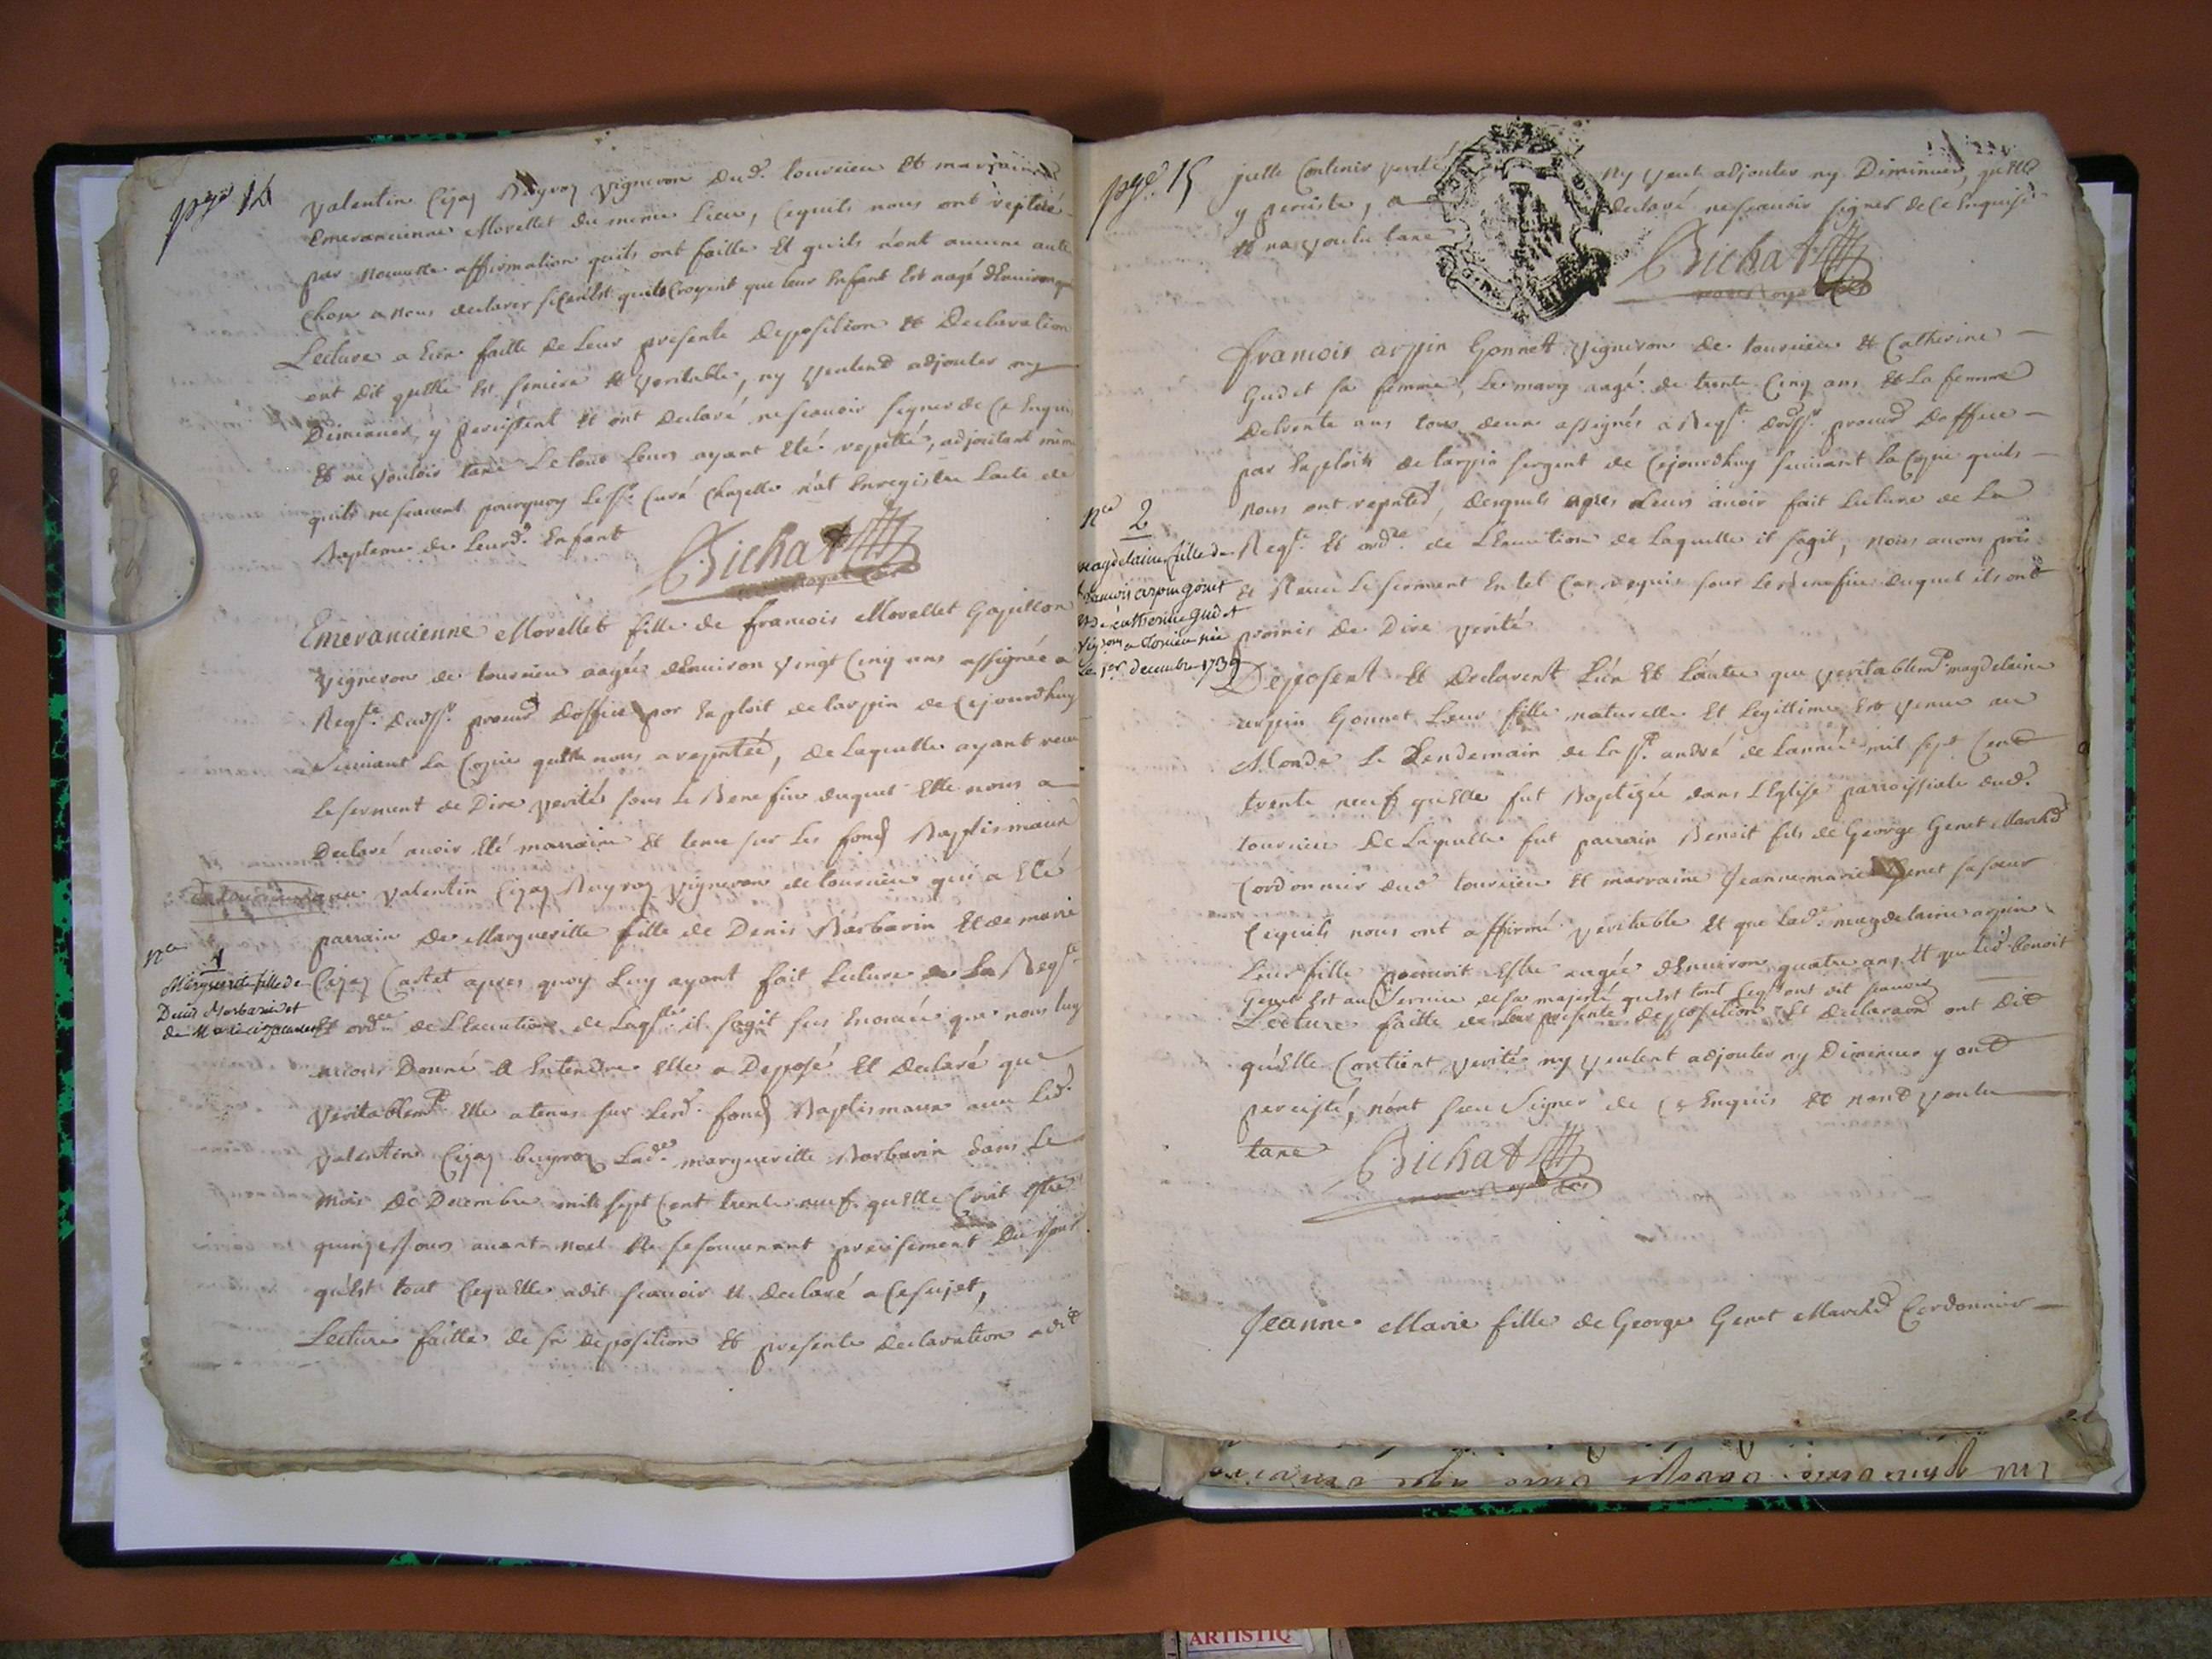 page 14
valentin Cizaj Buyroz vigneron dud. tourieu Et marainne
Emerancienne Morellet du meme Lieu, Cequils nous ont repetté
par nouvelle affirmation quils ont faitte Et quils n'ont aucune autre
Chose a nous declarer si Cen'est quils Croyent que leur Enfant Est aagé d'Environ
Lecture a Eux faitte de Leur presente deposition Et Declaration
ont dit qu'elle Est sincere Et veritable, ny veulend adjouter ny
Diminuer, y percistent Et ont declaré ne scavoir signer de Ce Enquis
Et ne vouloir taxe Le tout Leurs ayant Eté repetté, adjoutant meme
quils ne scavent pourquoy Le Sr. Curé Chapelle n'at Enregistre Lacte de
Bapteme de Leurd. Enfant
Bichat
Emerancienne Morellet fille de francois Morellet Gapillon
vigneron de tourieu aagée d'Environ vingt Cinq ans assignée a
Reqte. dudSr. procur d'office par Exploit de larpin de Cejourdhuy
Suivant La Copie quElle nous a repntée, de Laquelle ayant receu
le serment de Dire verité sous Le Benefice duquel Elle nous a
Declaré avoir Eté marraine Et tenu sur Les fonds Baptismaux
avec valentin Cizaj Buyroz vigneron de tourieu qui a Eté
parrain de Margueritte fille de Denis Barbarin Et de marie
nce
1
Marguerite fille de
Denis Barbarin et
de Marie cizacastet
Cizaj Castet apres quoy Luy ayant fait Lecture de La Reqte
Et ordce de L'Execution de Laqlle il sagit sus Enoncée que nous luy
avons Donné a Entendre Elle a Deposé Et declaré que
veritablemt Elle a tenus sur Lesd. fonds Baptismaux avec Led.
valentin Cizaj buyroz Lade margueritte Barbarin dans Le
mois de Decembre mil sept Cent trente neuf quElle Croit Estre
quinze Jours avant noel Ne se souvenant precisement Du Jour
qu'Est tout CequElle a dit scavoir Et declaré a Cesujet,
Lecture faitte de sa deposition Et presente declaration a dit
page 15
y perciste, a
et na voulu taxe
ny veut adjouter ny Diminuer, quElle
declaré ne scavoir signer de Ce Enquise
Bichat
francois arpin Gonnet vigneron de tourieu Et Catherine
Gudet sa femme, Le mary aagé de trente Cinq ans Et La femme
De trente ans tous deux assignés a Reqte. dudSr. procur D'office
par Exploits de larpin sergent de Cejourdhuy suivant la Copie quils
nous ont repnted, desquels apres Leurs avoir fait Lecture de La
nce 2
magdelaine fille de
francois arpin gonet
et de catherine gudet
vigrons a Torieu née
le 1er decembre 1739
Reqte Et ordce de L'Execution de Laquelle il sagit, nous avons pris
Et Receu Le serment En tel Cas requis sous Le Benefice duquel ils ont
promis de Dire verité
Deposent Et Declarent L'un Et L'autre que veritablemt magdelaine
arpin Gonnet Leur fille naturelle Et Legittime Est venue au
Monde Le Lendemain de La St. andré de l'année mil sept Cent
trente neuf quElle fut Baptizée dans L'Eglise parroissiale dud.
tourieu de Laquelle fut parrain Benoit fils de George Genet Marchd
Cordonnier dud tourieu Et marraine Jeanne marie Genet sa sœur
Cequils nous ont affirmé veritable Et que Lade. magdelaine arpin
Leur fille pouvoit Estre aagée d'Environ quatre ans Et que Led. benoit
Genet Est au service de sa majesté qu'est tout Cequils ont dit scavoir
Lecture faitte de Leur presente deposition Et declaraon ont Dit
qu'Elle Contient verité ny veulent adjouter ny Diminuer y ont
percisté, n'ont sceu Signer de Ce Enquis Et nont voulu
taxe
Bichat
Jeanne Marie fille de George Genet Marchd Cordonnier
ARTISTIQ